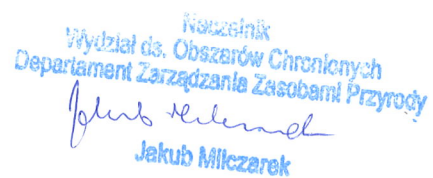 Naczelnik
Wydział ds. Obszarów Chronionych
Departament Zarządzania Zasobami Przyrody
Jakub Milczarek
Jakub Milczarek